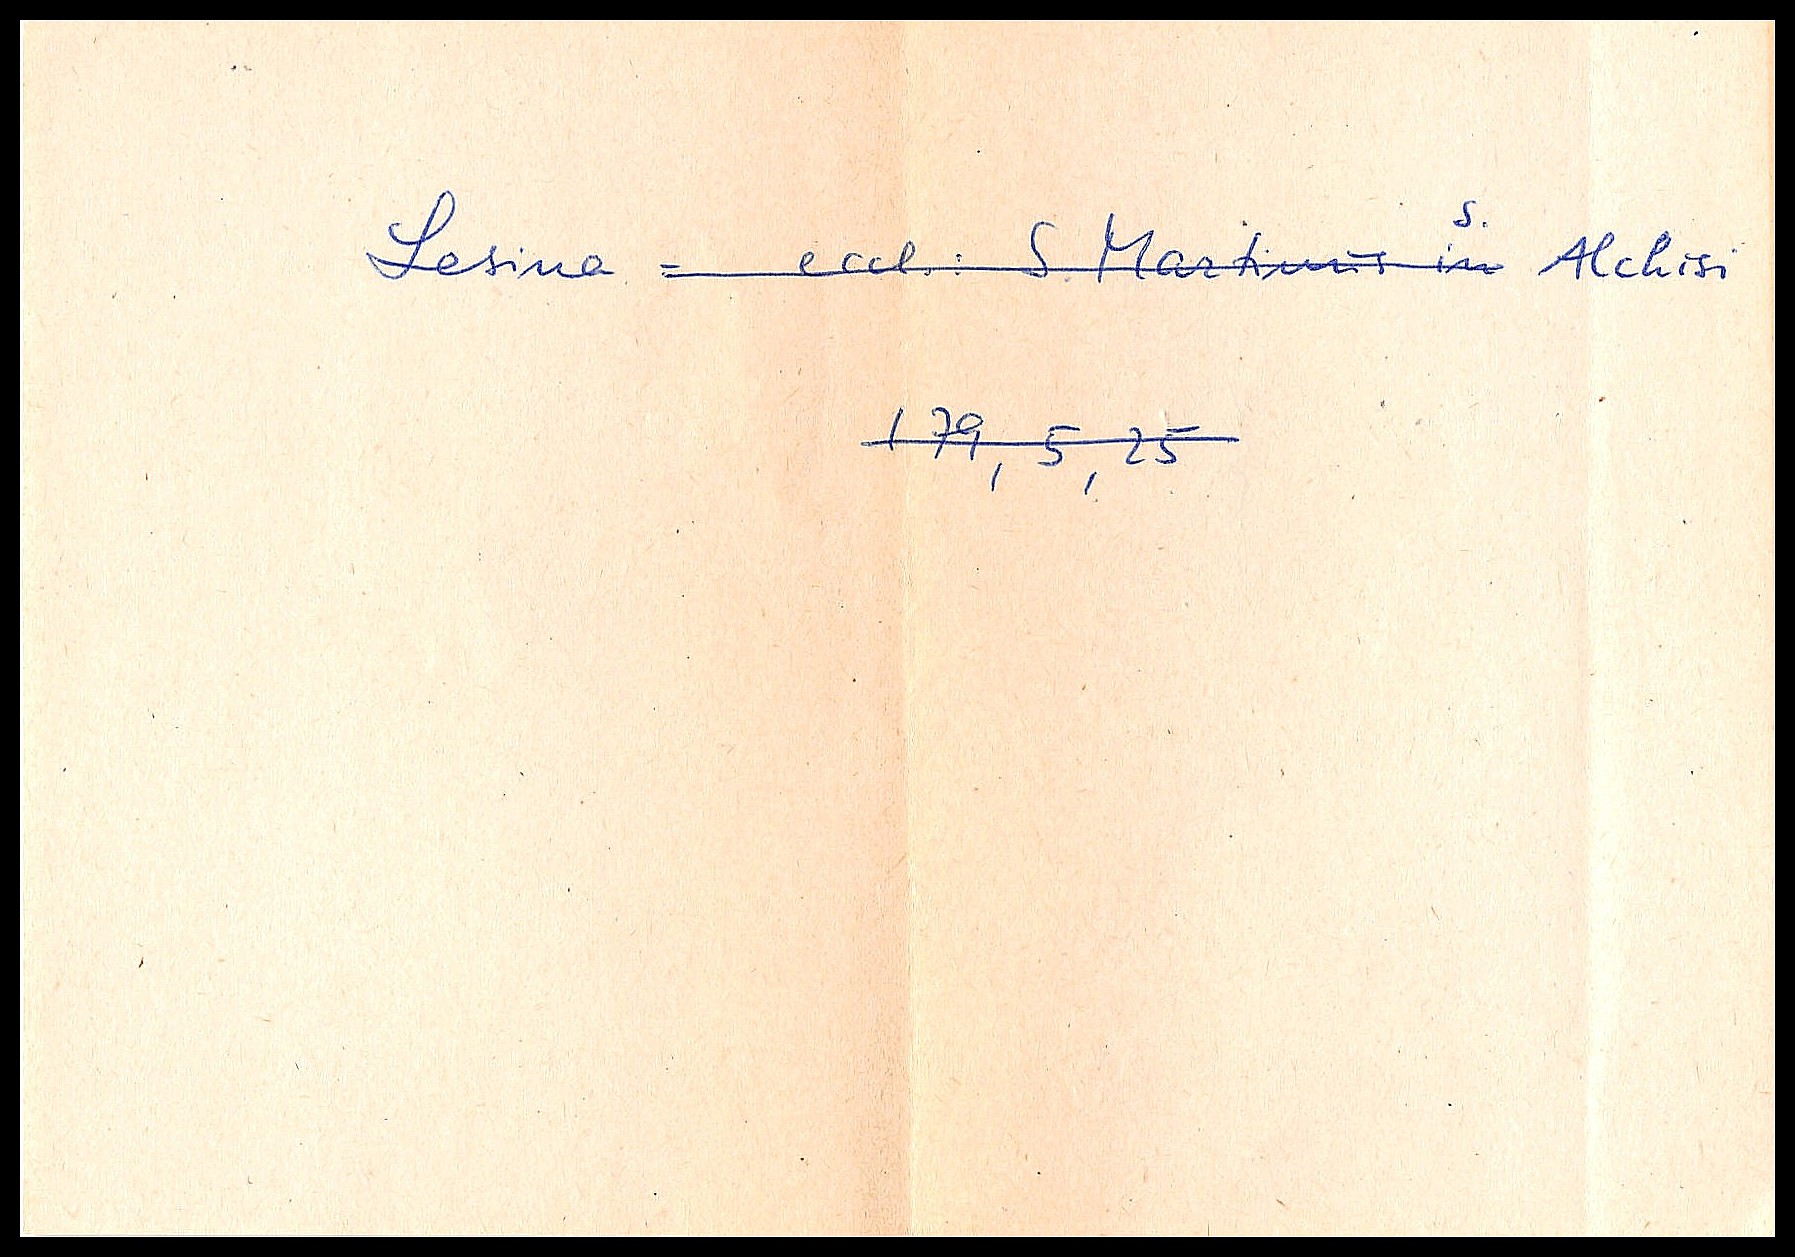 Lesina = eccl.: S. Martinus in s. Alchisi
179, 5, 25